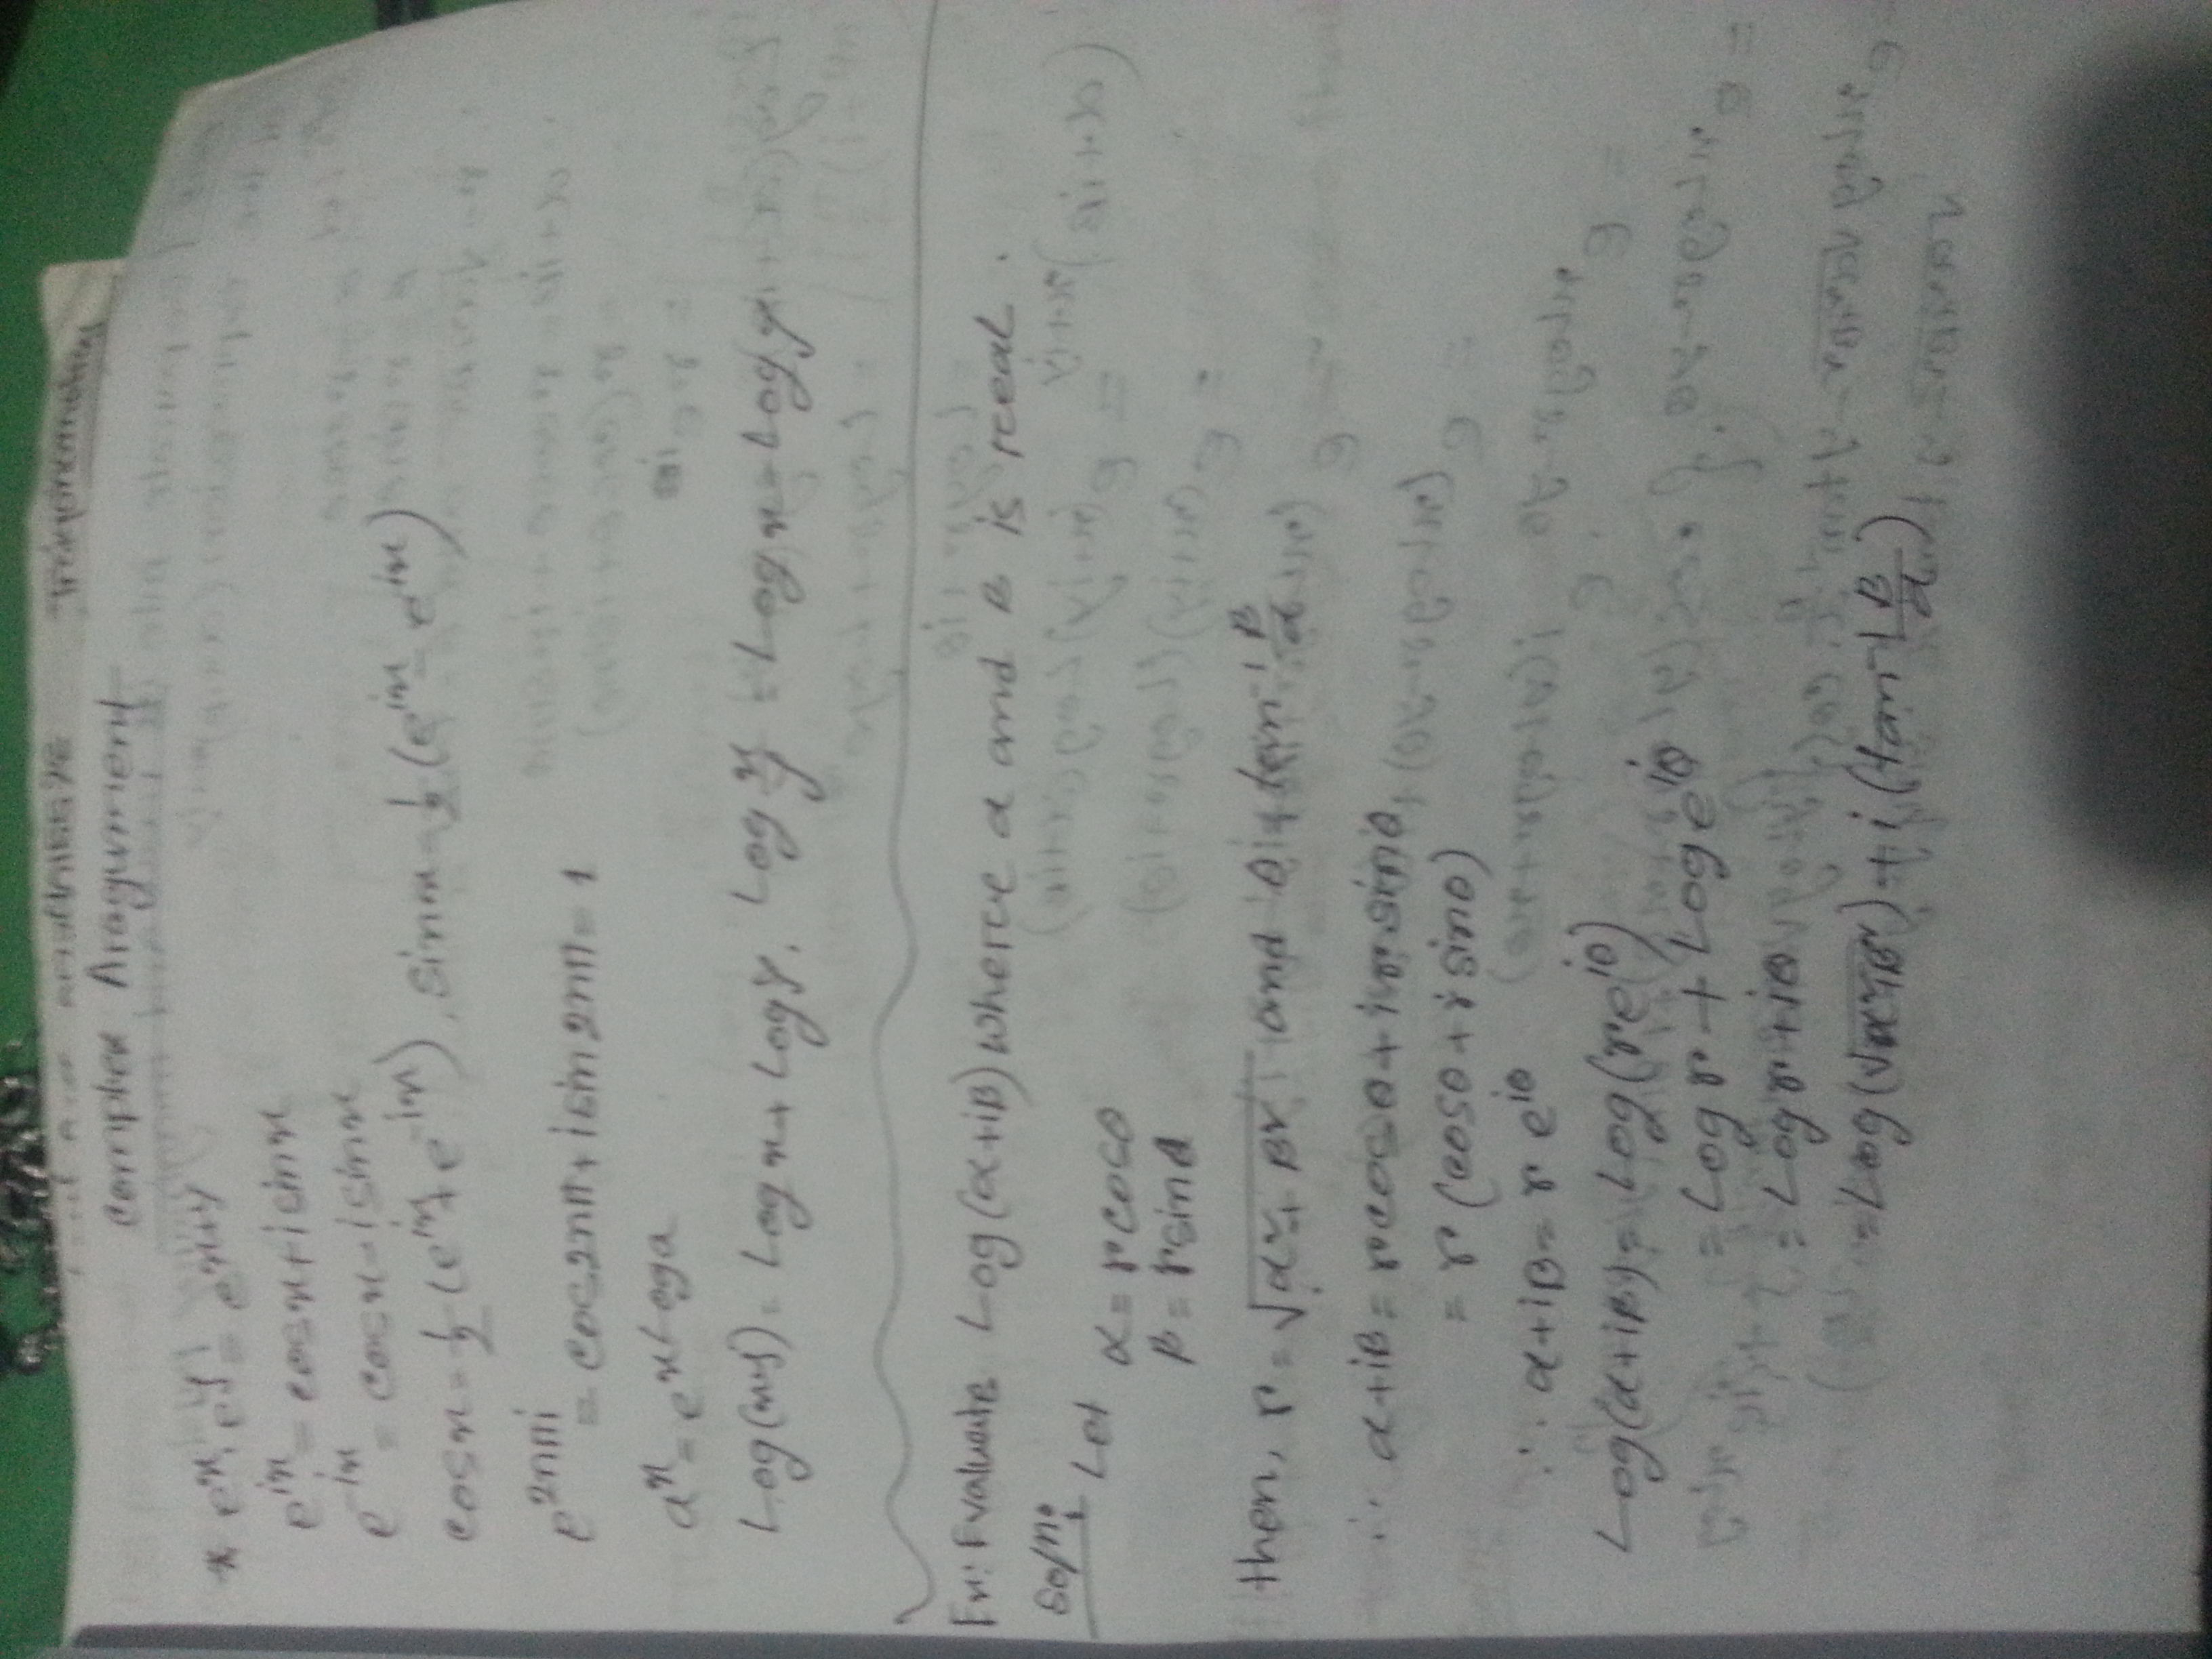 Trigonometry
Complex Aragument
* e^x. e^y = e^x+y
e^ix = cosx+isinx
e^-ix = cosx-isinx
cosx = 1/2 (e^ix + e^-ix), sinx = 1/2 (e^ix - e^-ix)
e^2nπi = cos2nπ+isin2nπ = 1
a^x = e^xLoga
Log(x+y) = Logx+Logy, Log x/y = Logx-Logy
Ex: Evaluate Log(α+iβ) where α and β is real.
Soln: Let α = rcosθ
β = rsinθ
then, r = √α²+β² and θ = tan⁻¹ β/α
∴ α+iβ = rcosθ+irsinθ
= r(cosθ+isinθ)
∴ α+iβ = r e^iθ
Log(α+iβ) = Log(re^iθ)
= Logr+Loge^iθ
= Logr+iθ
= Log(√α²+β²)+i(tan⁻¹ β/α)